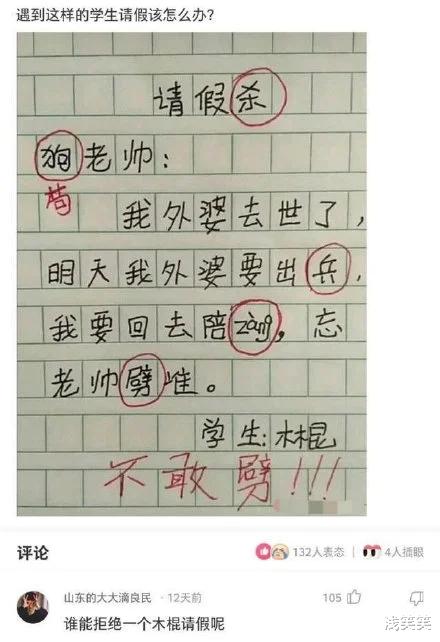 遇到这样的学生请假该怎么办?
请假杀
狗老帅:
苟
我外婆去世了,
明天我外婆要出兵,
我要回去陪zàng,忘
老帅劈唯。
学生:木棍
不敢劈!!!
评论
132人表态 4人插眼
山东的大大滴良民 · 12天前 105
谁能拒绝一个木棍请假呢
浅笑笑